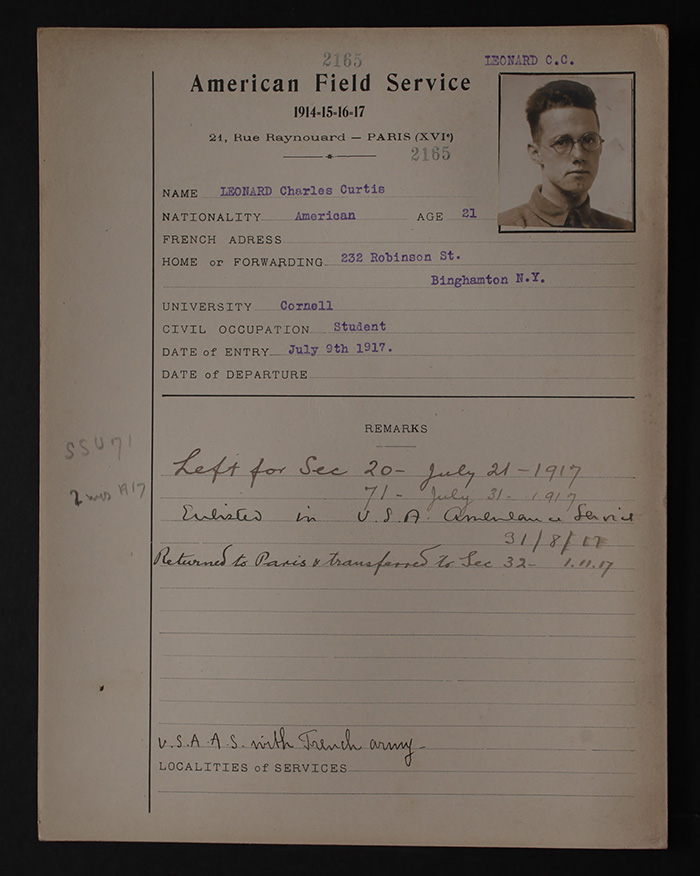 2165
LEONARD C.C.
American Field Service
1914-15-16-17
21, Rue Raynouard — PARIS (XVIe)
2165
NAME LEONARD Charles Curtis
NATIONALITY American AGE 21
FRENCH ADRESS
HOME or FORWARDING 232 Robinson St.
Binghamton N.Y.
UNIVERSITY Cornell
CIVIL OCCUPATION Student
DATE of ENTRY July 9th 1917.
DATE of DEPARTURE
REMARKS
SSU 71
Left for Sec 20- July 21-1917
71- July 31- 1917
2 mos 1917
Enlisted in U.S.A. Ambulance Service
31/8/17
Returned to Paris & transferred to Sec 32- 1.11.17
U.S.A.A.S. with French army-
LOCALITIES of SERVICES